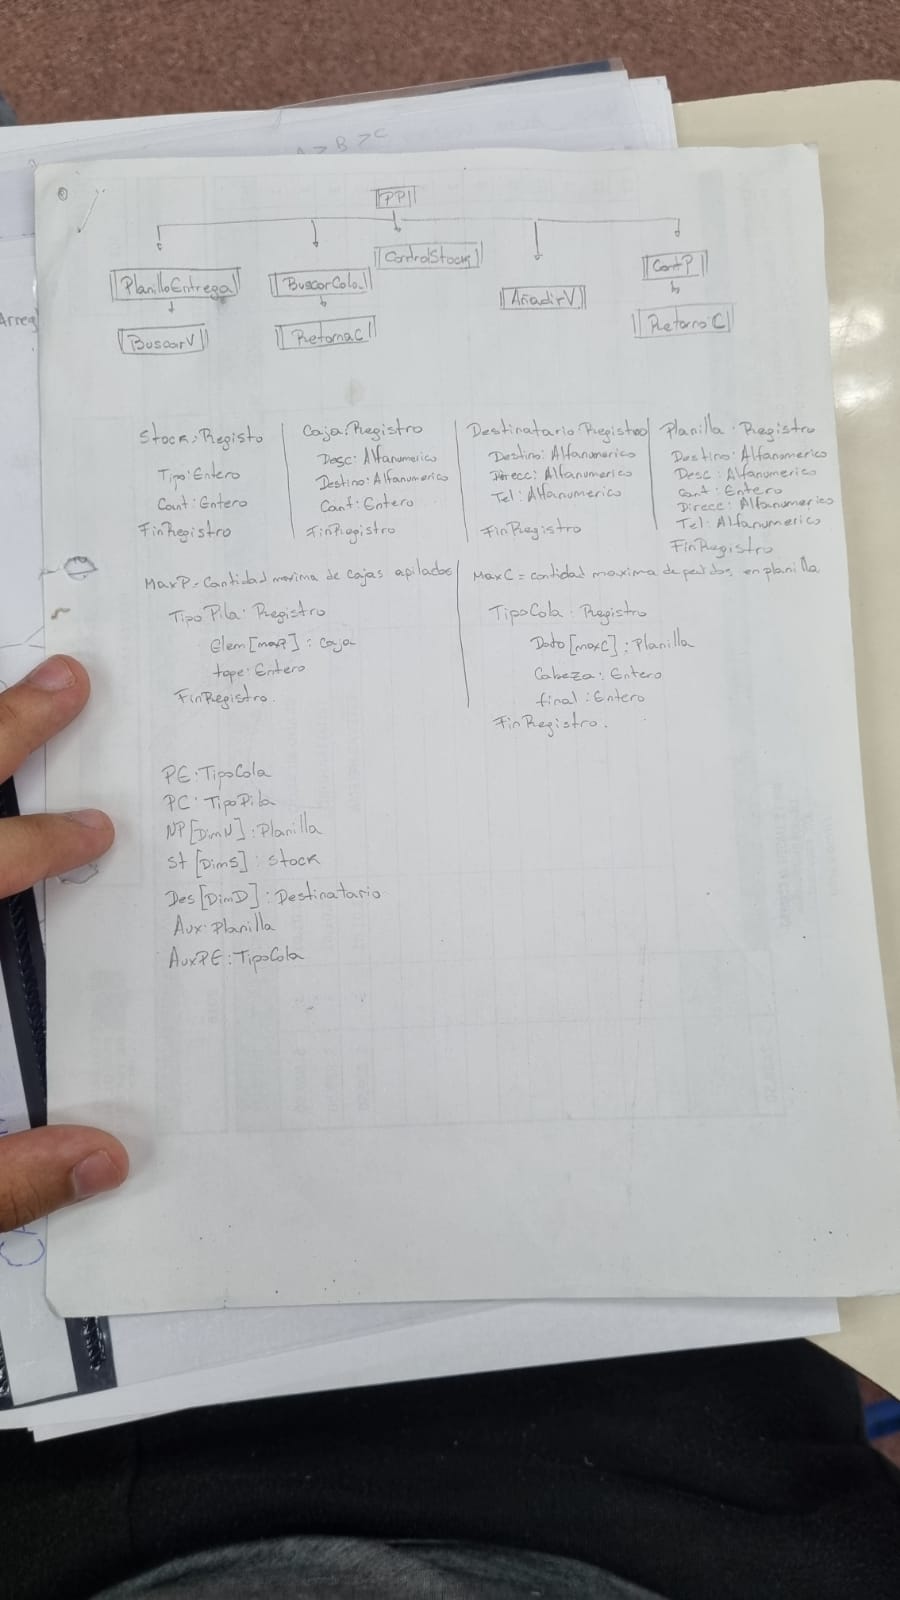 A > B > C
PP
PlanillaEntrega
BuscarCola
ControlStock
AñadirV
ContP
BuscarV
RetornaC
RetornoC
Arreg
Stock: Registo
Tipo: Entero
Cant: Entero
FinRegistro
Caja: Registro
Desc: Alfanumerico
Destino: Alfanumerico
Cant: Entero
FinRegistro
Destinatario: Registro
Destino: Alfanumerico
Direcc: Alfanumerico
Tel: Alfanumerico
FinRegistro
Planilla: Registro
Destino: Alfanumerico
Desc: Alfanumerico
Cant: Entero
Direcc: Alfanumerico
Tel: Alfanumerico
FinRegistro
MaxP = Cantidad maxima de cajas apilados
TipoPila: Registro
Elem[maxP]: Caja
tope: Entero
FinRegistro.
MaxC = cantidad maxima de pedidos en planilla
TipoCola: Registro
Dato[maxC]: Planilla
Cabeza: Entero
final: Entero
FinRegistro.
PE: TipoCola
PC: TipoPila
NP[DimN]: Planilla
St[DimS]: Stock
Des[DimD]: Destinatario
Aux: Planilla
AuxPE: TipoCola